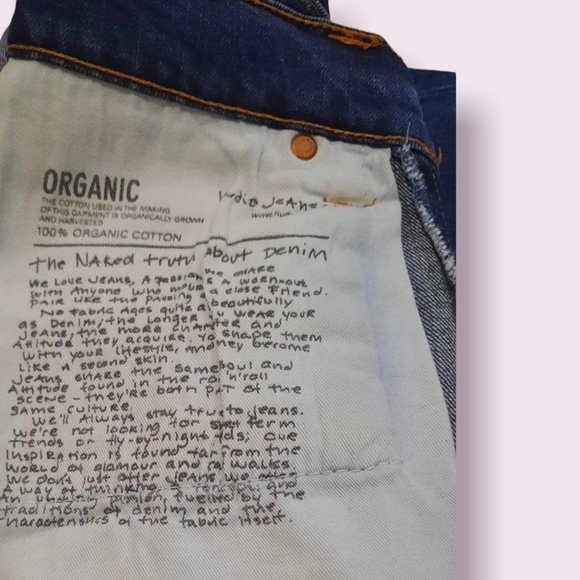 ORGANIC
THE COTTON USED IN THE MAKING
OF THIS GARMENT IS ORGANICALLY GROWN
AND HARVESTED
100% ORGANIC COTTON
Jeans
www.
the Naked truth about Denim
We love Jeans, A passion we share
with Anyone who a worn-out
pair like the passing a close friend.
No fabric Ages quite as beautifully
as Denim, the longer you wear your
Jeans, the more character and
Attitude they acquire. You shape them
with your lifestyle, and they become
like a second skin.
Jeans share the same soul and
Attitude found in the rock'n'roll
scene - they're both part of the
same culture.
We'll Always stay true to Jeans.
We're not looking for short term
trends or fly-by-night fads; our
inspiration is found far from the
world of glamour and walks.
We don't just offer Jeans we offer
A way of thinking, a and
An passion, fuelled by the
traditions of denim and the
characteristics of the fabric itself.